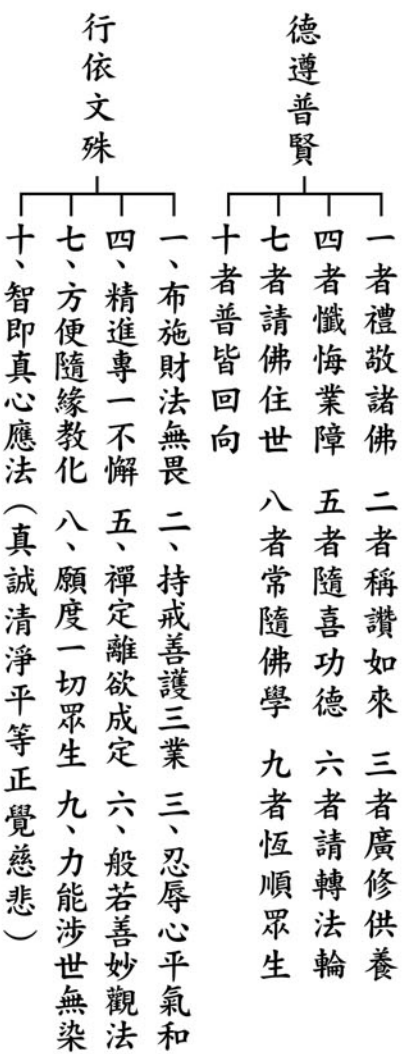 德遵普賢
一者禮敬諸佛 二者稱讚如來 三者廣修供養
四者懺悔業障 五者隨喜功德 六者請轉法輪
七者請佛住世 八者常隨佛學 九者恆順眾生
十者普皆回向
行依文殊
一、布施財法無畏 二、持戒善護三業 三、忍辱心平氣和
四、精進專一不懈 五、禪定離欲成定 六、般若善妙觀法
七、方便隨緣教化 八、願度一切眾生 九、力能涉世無染
十、智即真心應法（真誠清淨平等正覺慈悲）